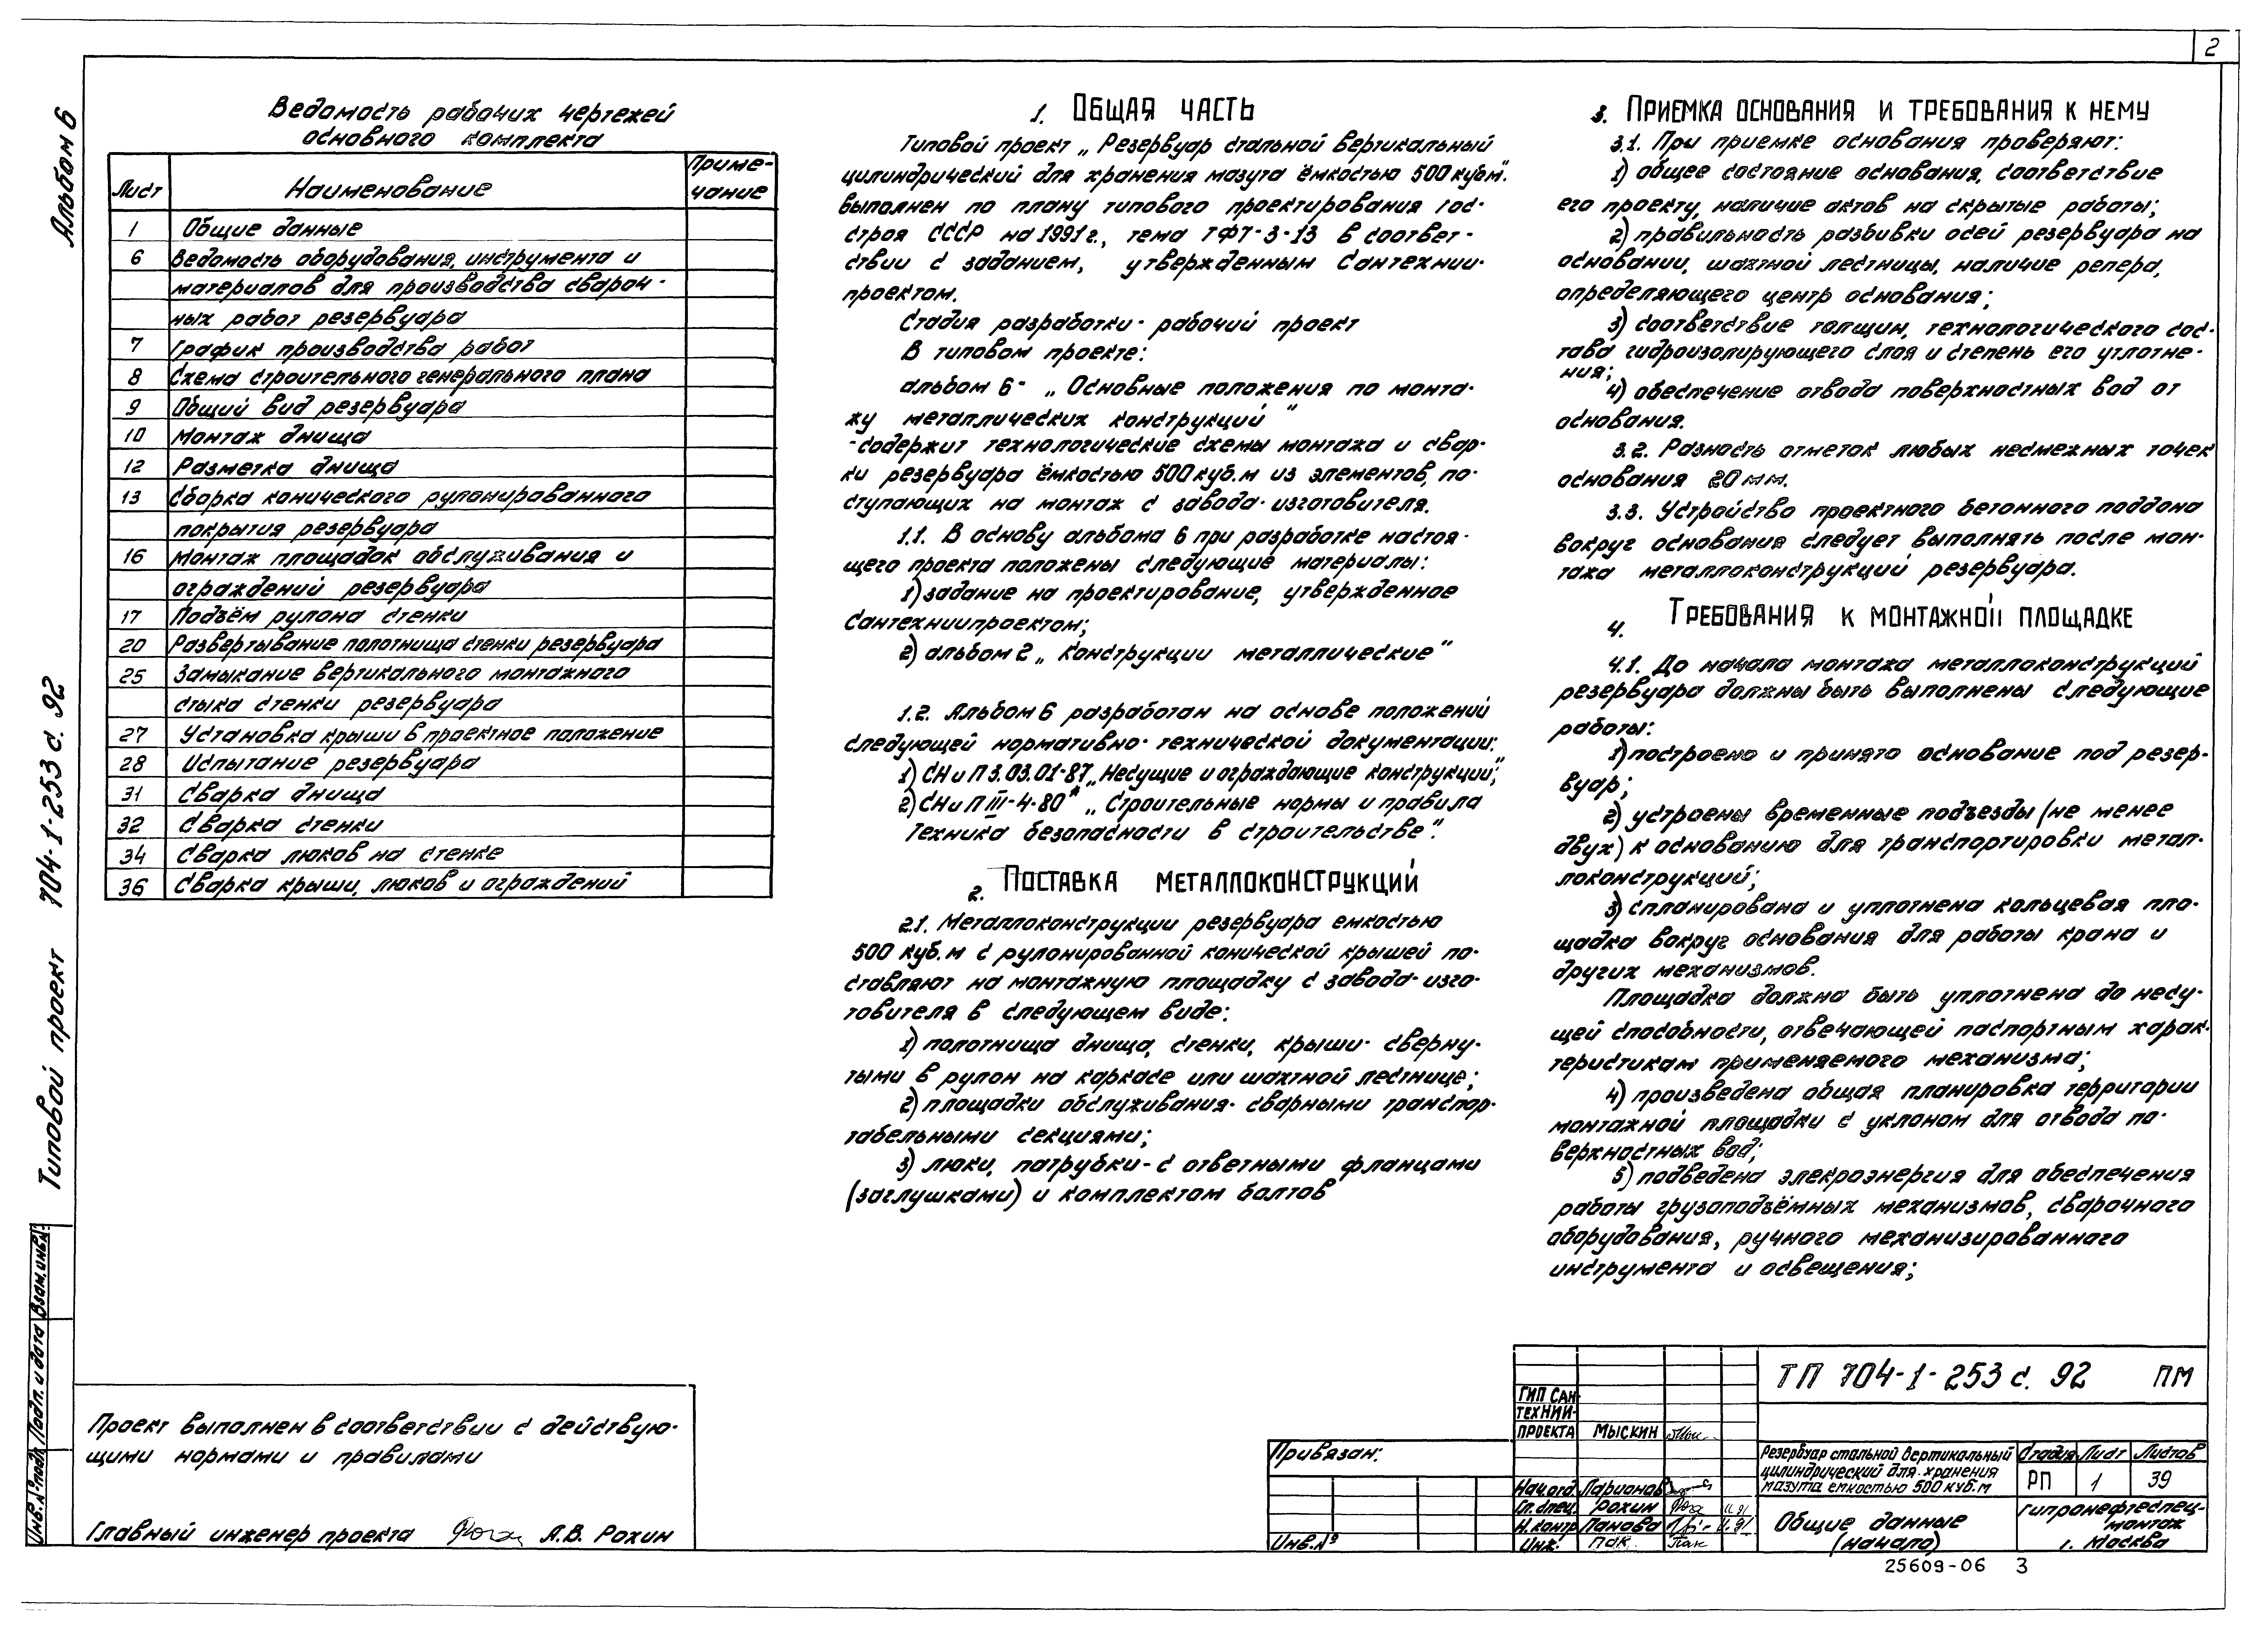 2
Альбом 6
Типовой проект 704-1-253 с. 92
Ведомость рабочих чертежей
основного комплекта
Лист Наименование Приме-
чание
1 Общие данные
6 Ведомость оборудования, инструмента и
материалов для производства свароч-
ных работ резервуара
7 График производства работ
8 Схема строительного генерального плана
9 Общий вид резервуара
10 Монтаж днища
12 Разметка днища
13 Сборка конического рулонированного
покрытия резервуара
16 Монтаж площадок обслуживания и
ограждений резервуара
17 Подъём рулона стенки
20 Развертывание полотнища стенки резервуара
25 Замыкание вертикального монтажного
стыка стенки резервуара
27 Установка крыши в проектное положение
28 Испытание резервуара
31 Сварка днища
32 Сварка стенки
34 Сварка люков на стенке
36 Сварка крыши, люков и ограждений
Проект выполнен в соответствии с действую-
щими нормами и правилами
Главный инженер проекта А.В. Рохин
1. Общая часть
Типовой проект „Резервуар стальной вертикальный
цилиндрический для хранения мазута ёмкостью 500 куб.м".
выполнен по плану типового проектирования гос-
строя СССР на 1991 г., тема ТФ7-3-13 в соответ-
ствии с заданием, утвержденным Сантехнии-
проектом.
Стадия разработки - рабочий проект
В типовом проекте:
альбом 6 - „Основные положения по монта-
жу металлических конструкций"
- содержит технологические схемы монтажа и свар-
ки резервуара ёмкостью 500 куб.м из элементов, по-
ступающих на монтаж с завода-изготовителя.
1.1. В основу альбома 6 при разработке настоя-
щего проекта положены следующие материалы:
1) задание на проектирование, утвержденное
Сантехниипроектом;
2) альбом 2 „Конструкции металлические"
1.2. Альбом 6 разработан на основе положений
следующей нормативно-технической документации:
1) СНиП 3.03.01-87 „Несущие и ограждающие конструкции";
2) СНиП III-4-80* „Строительные нормы и правила
Техника безопасности в строительстве".
2. Поставка металлоконструкций
2.1. Металлоконструкции резервуара емкостью
500 куб.м с рулонированной конической крышей по-
ставляют на монтажную площадку с завода-изго-
товителя в следующем виде:
1) полотнища днища, стенки, крыши - сверну-
тыми в рулон на каркасе или шахтной лестнице;
2) площадки обслуживания - сварными транспор-
табельными секциями;
3) люки, патрубки - с ответными фланцами
(заглушками) и комплектом болтов
3. Приемка основания и требования к нему
3.1. При приемке основания проверяют:
1) общее состояние основания, соответствие
его проекту, наличие актов на скрытые работы;
2) правильность разбивки осей резервуара на
основании, шахтной лестницы, наличие репера,
определяющего центр основания;
3) соответствие толщин, технологического сос-
тава гидроизолирующего слоя и степень его уплотне-
ния;
4) обеспечение отвода поверхностных вод от
основания.
3.2. Разность отметок любых несмежных точек
основания 20 мм.
3.3. Устройство проектного бетонного поддона
вокруг основания следует выполнять после мон-
тажа металлоконструкций резервуара.
4. Требования к монтажной площадке
4.1. До начала монтажа металлоконструкций
резервуара должны быть выполнены следующие
работы:
1) построено и принято основание под резер-
вуар;
2) устроены временные подъезды (не менее
двух) к основанию для транспортировки метал-
локонструкций;
3) спланирована и уплотнена кольцевая пло-
щадка вокруг основания для работы крана и
других механизмов.
Площадка должна быть уплотнена до несу-
щей способности, отвечающей паспортным харак-
теристикам применяемого механизма;
4) произведена общая планировка территории
монтажной площадки с уклоном для отвода по-
верхностных вод;
5) подведена элекроэнергия для обеспечения
работы грузоподъёмных механизмов, сварочного
оборудования, ручного механизированного
инструмента и освещения;
Привязан:
Инв. №
ГИП Сан-
технии-
проекта Мыскин
Нач.отд Ларионов
Гл. спец. Рохин 11.91
Н. контр Панова 11.91
Инж. Пак
ТП 704-1-253 с. 92 ПМ
Резервуар стальной вертикальный
цилиндрический для хранения
мазута емкостью 500 куб.м
Стадия Лист Листов
РП 1 39
Общие данные
(начало)
Гипронефтеспец-
монтаж
г. Москва
25609-06 3
Инв. № подл. Подп. и дата Взам. инв. №